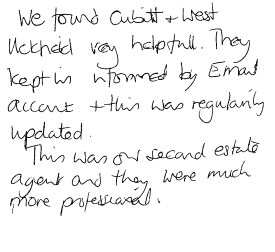 We found Cubitt + West
Uckfield very helpfull. They
kept us informed by Email
account + this was regularily
updated.
This was our second estate
agent and they were much
more professional.